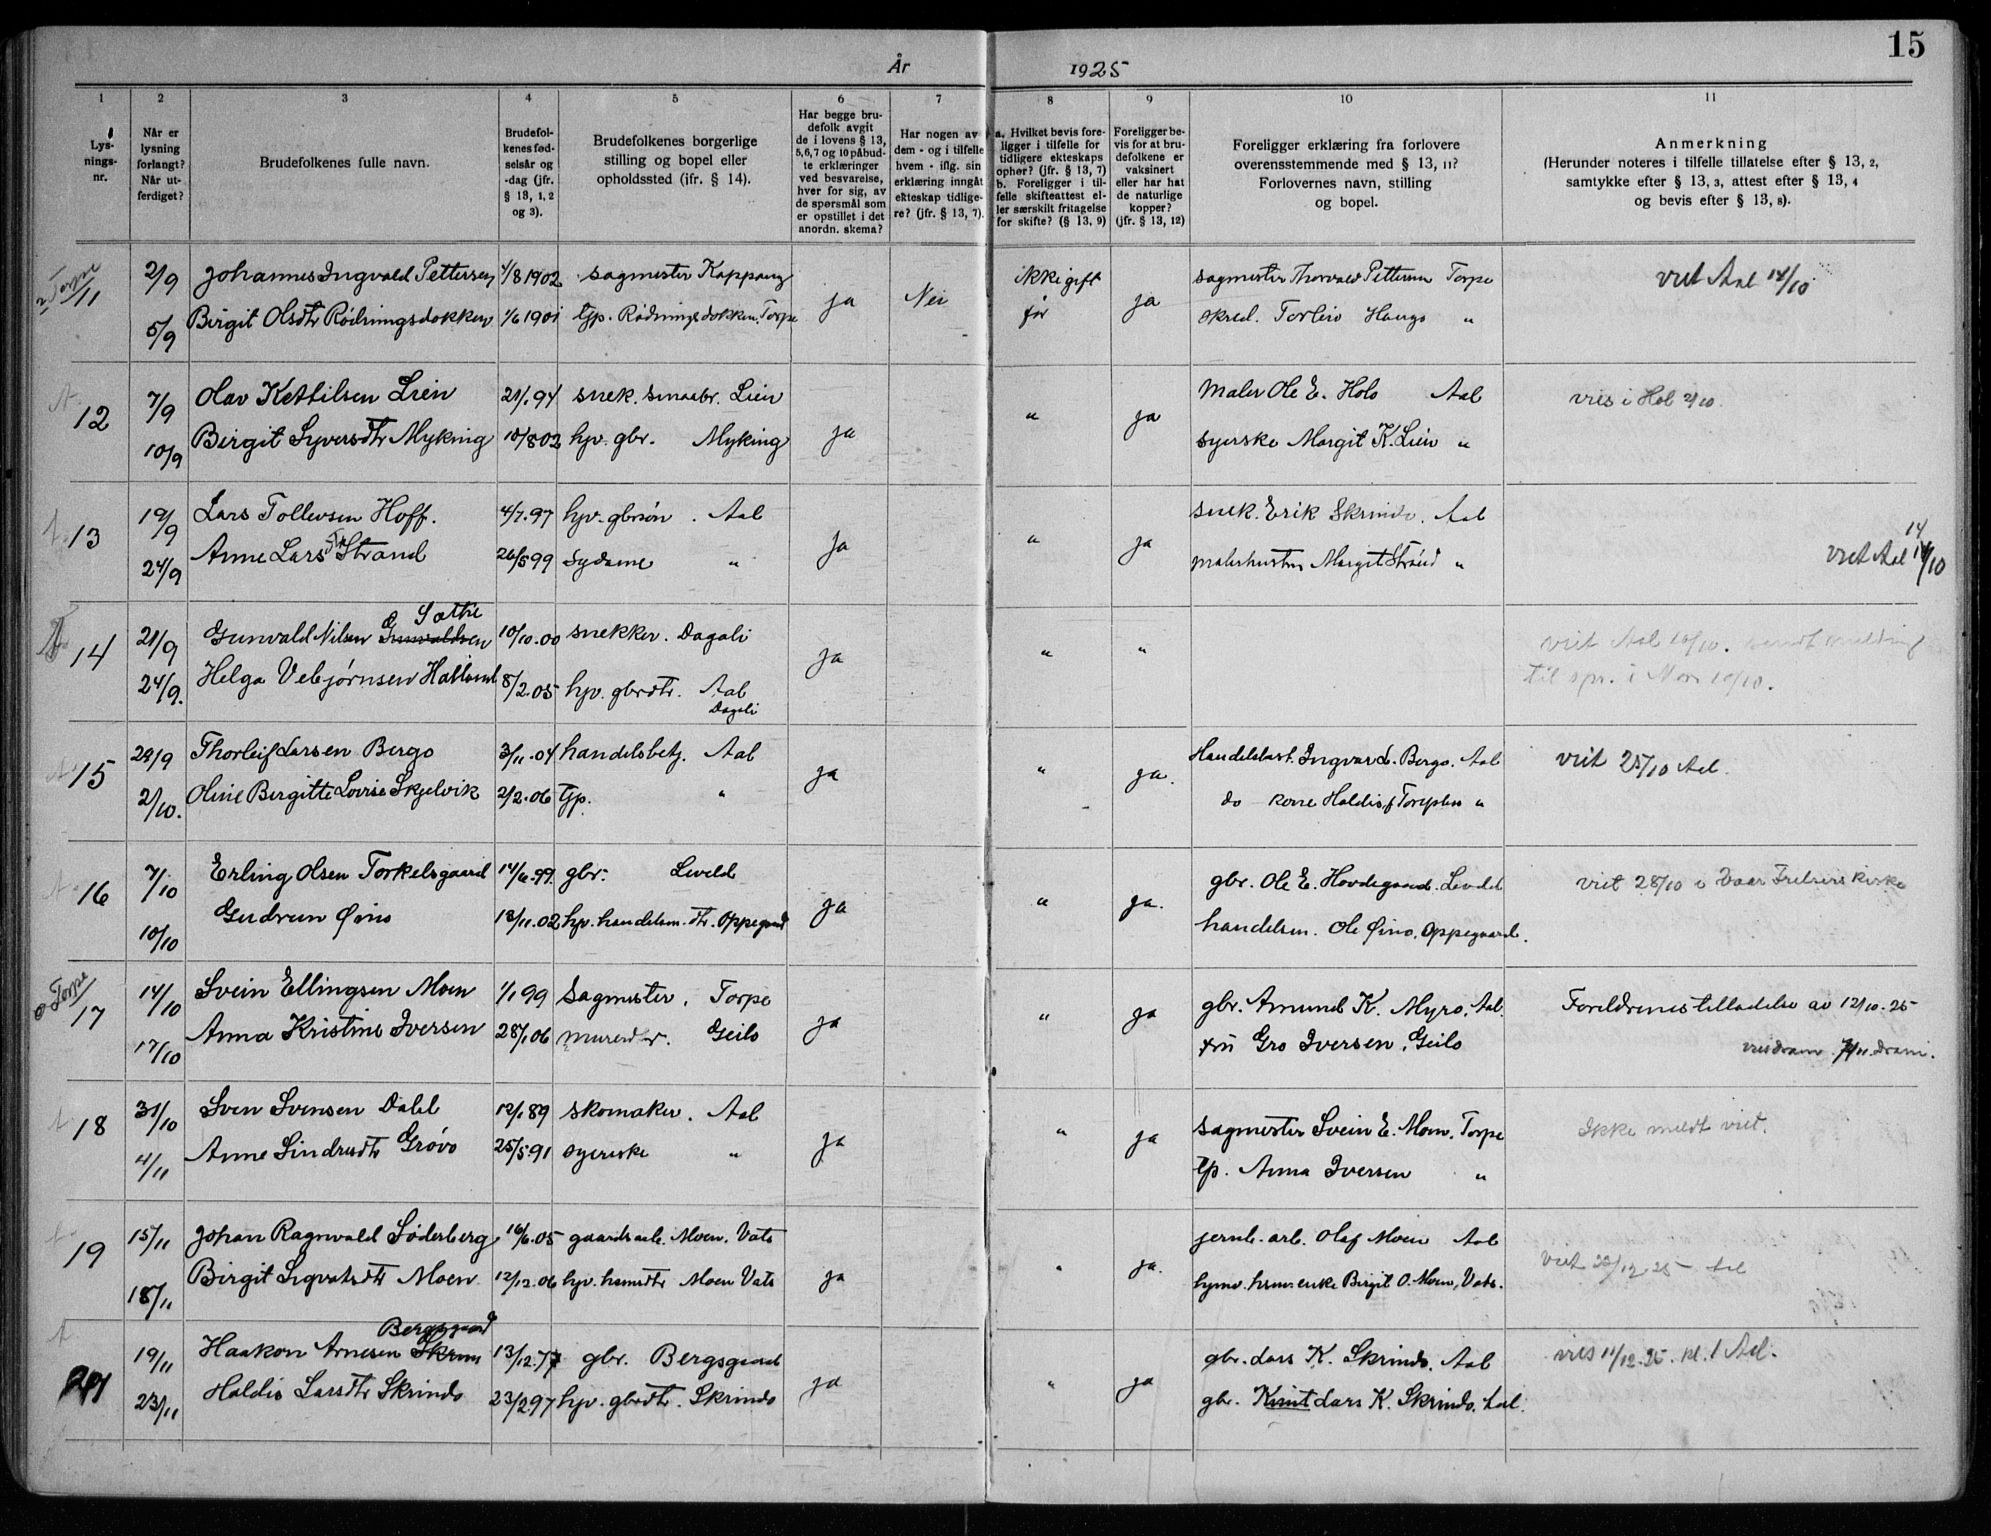 15
År 1925
1 2 3 4 5 6 7 8 9 10 11
Lys-
nings-
nr.
Når er
lysning
forlangt?
Når ut-
ferdiget?
Brudefolkenes fulle navn.
Brudefol-
kenes fød-
selsår og
-dag (jfr.
§ 13, 1, 2
og 3).
Brudefolkenes borgerlige
stilling og bopel eller
opholdssted (jfr. § 14).
Har begge bru-
defolk avgit
de i lovens § 13,
5, 6, 7 og 10 påbud-
te erklæringer
ved besvarelse,
hver for sig, av
de spørsmål som
er opstillet i det
anordn. skema?
Har nogen av
dem - og i tilfelle
hvem - iflg. sin
erklæring inngåt
ekteskap tidlige-
re? (jfr. § 13, 7).
a. Hvilket bevis fore-
ligger i tilfelle for
tidligere ekteskaps
ophør? (jfr. § 13, 7)
b. Foreligger i til-
felle skifteattest el-
ler særskilt fritagelse
for skifte? (§ 13, 9)
Foreligger be-
vis for at bru-
defolkene er
vaksinert
eller har hat
de naturlige
kopper?
(jfr. § 13, 12)
Foreligger erklæring fra forlovere
overensstemmende med § 13, 11?
Forlovernes navn, stilling
og bopel.
Anmerkning
(Herunder noteres i tilfelle tillatelse efter § 13, 2,
samtykke efter § 13, 3, attest efter § 13, 4
og bevis efter § 13, 8).
Torpe
11 2/9 Johannes Ingvald Pettersen 4/8 1902 sagmester Kappang ja Nei ikke gift ja sagmester Thorvald Pettersen Torpe viet Aal 14/10
5/9 Birgit Olsdtr Rødningsdokken 1/6 1901 tjp. Rødningsdokken. Torpe før skred. Torleiv Haugo "
12 7/9 Olav Kettilsen Lien 21/1.94 snek. smaabr. Lien ja " ja Maler Ole E. Holo Aal vies i Hol 2/10.
10/9 Birgit Syversdtr Myking 10/8 02 hjv. gbr. Myking syerske Margit K. Lien "
13 19/9 Lars Tollevsen Hoff. 4/7.97 hjv. gbrsøn. Aal ja " ja snek. Erik Skrindo. Aal
24/9 Anne Larsdtr Strand 26/5 99 sydame " malerhustru Margit Strand " viet Aal 14/10
Sætre
14 21/9 Gunvald Nilsen Gunvaldsen 10/10.00 snekker. Dagali ja " " viet Aal 10/10. sendt melding
24/9. Helga Vebjørnsen Halland 8/2.05 hjv. gbrdtr. Aal til spr. i Nore 10/10.
Dagali
15 29/9 Thorleif Larsen Bergo 3/11.04 handelsbetj. Aal ja " ja. Handelsbest. Ingvar L. Bergo. Aal viet 25/10 Aal.
2/10. Oline Birgitte Lovise Skjelvik 2/2.06 tjp. " do kone Haldis f Torsplen "
16 7/10 Erling Olsen Torkelsgaard 14/6.99. gbr. Leveld ja " ja. gbr. Ole E. Hovdegaard. Leveld viet 28/10 i Vaar Frelsers kirke
10/10 Gudrun Øino 18/11.02 hjv. handelsm. dtr. Oppegaard handelsm. Ole Øino, Oppegaard.
Torpe
17 14/10 Svein Ellingsen Moen 1/1 99 Sagmester. Torpe ja " ja gbr. Amund K. Myro. Aal. Foreldrenes tilladelse av 12/10-25
17/10 Anna Kristine Iversen 28/1 06 Geilo fru Gro Iversen, Geilo
18 31/10 Sven Svensen Dalel 12/1 89 skomaker. Aal ja " ja sagmester Svein E. Moen, Torpe Ikke meldt viet.
4/11 Anne Sindresdtr Grøvo 25/5.91 syerske " tjp. Anna Iversen "
19 15/11 Johan Ragnvald Søderberg 16/6.05 gaardsarb. Moen. Vats ja " ja. jernb. arb. Olaf Moen Aal viet 22/12 25 Aal
18/11 Birgit Sigvatsdtr Moen 12/12.06 hjv. hsmdtr Moen Vats hjmv. hsm. enke Birgit O. Moen, Vats.
Bergsgaard
19/11 Haakon Arnesen Skrin 13/12.77 gbr. Bergsgaard ja " ja gbr. Lars K. Skrindo, Aal vies 11/12.25. kl. 1 Aal.
23/11 Haldis Larsdtr Skrindo 23/2 97 hjv. gbrdtr. Skrindo gbr. Knut Lars K. Skrindo. Aal.